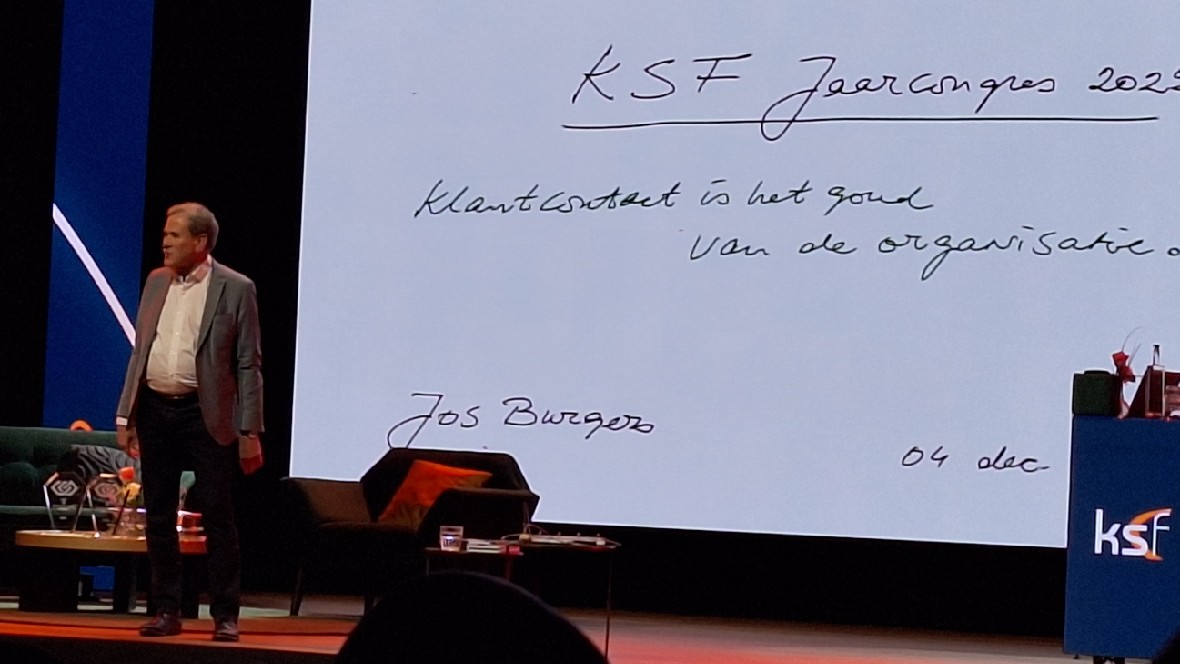 KSF Jaarcongres 202
Klantcontact is het goud
van de organisatie.
Jos Burgers
04 dec
ksf